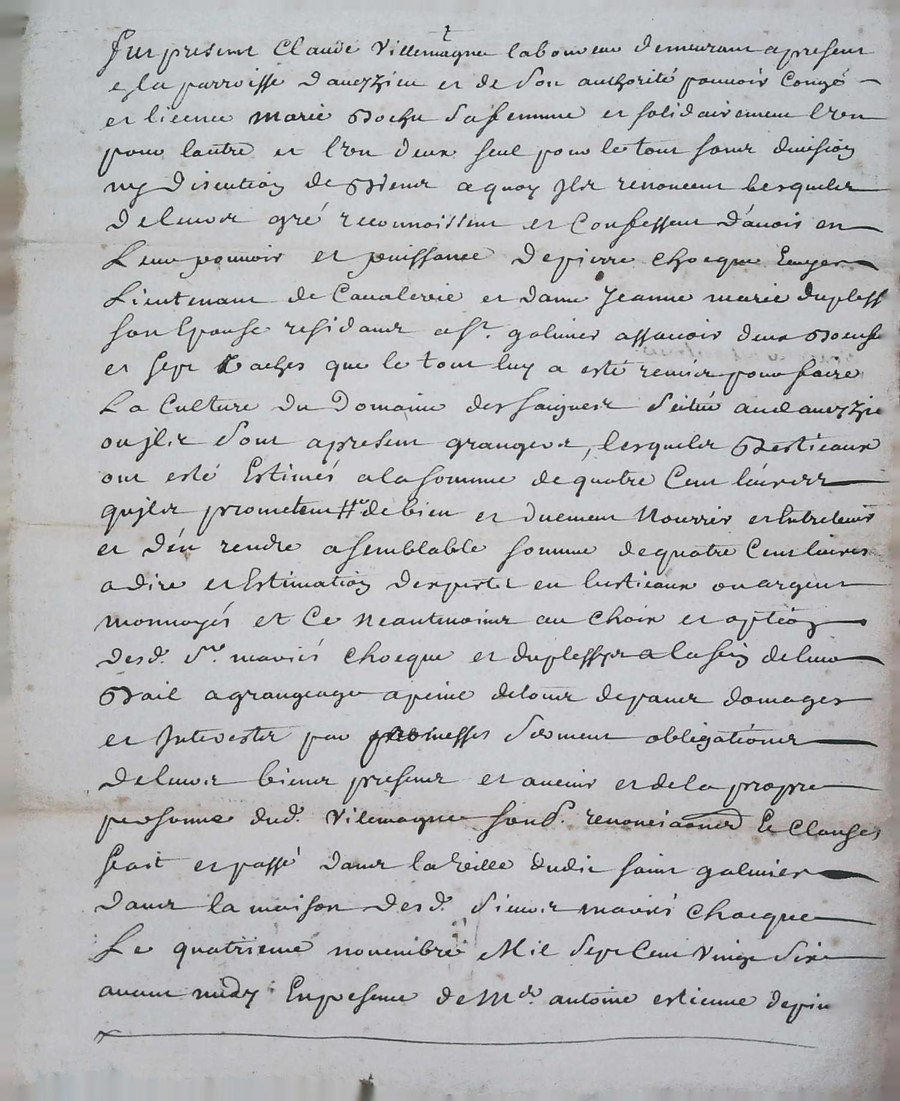 Fut present Claude Villemagne laboureur demeurant apresent
e, la parroisse dauezzieu et de son authorité pouvoir Congé
et licence marie sa femme et solidairement l'un
pour lautre et l'un deux seul pour le tout sans division
ny discution de Biens a quoy Ilz renoncent lesquelz
de leur gré reconnoissent et Confessent d'avoir en
Leur pouvoir et puissance de pierre Chocque Escuyer
Lieutenant de Cavalerie et dame Jeanne marie dupless
son Epouse residans a St. galmier assavoir deux Boeufs
et sept vaches que le tout luy a esté remis pour faire
La Culture du Domaine des saignes scitué aud auezzie
ou jlz sont apresent grangers, lesquelz Bestieaux
ont esté Estimés a la somme de quatre Cent livres
qu'jlz promettent de bien et duement Nourrir et Entretenir
et d'en rendre a semblable somme de quatre Cent livres
a dire et Estimation despertz en bestieaux ou argent
monnoyés et Ce neantmoins au Choix et option
desd. Srs. mariés Chocque et duplessys a la fin de leur
Bail a grangeage a peine de tous depans domages
et Interestz par promesses serment obligations
de leurs biens presens et avenir et de la propre
personne dud. Vilemagne sous. renonciaōns Et Clauses
fait et passé dans la ville dudit saint galmier
dans la maison desd. sieurs mariés Chocque
Le quatrieme novembre Mil Sept Cent Vingt Six
avant midy En presence de Mre antoine estienne depin